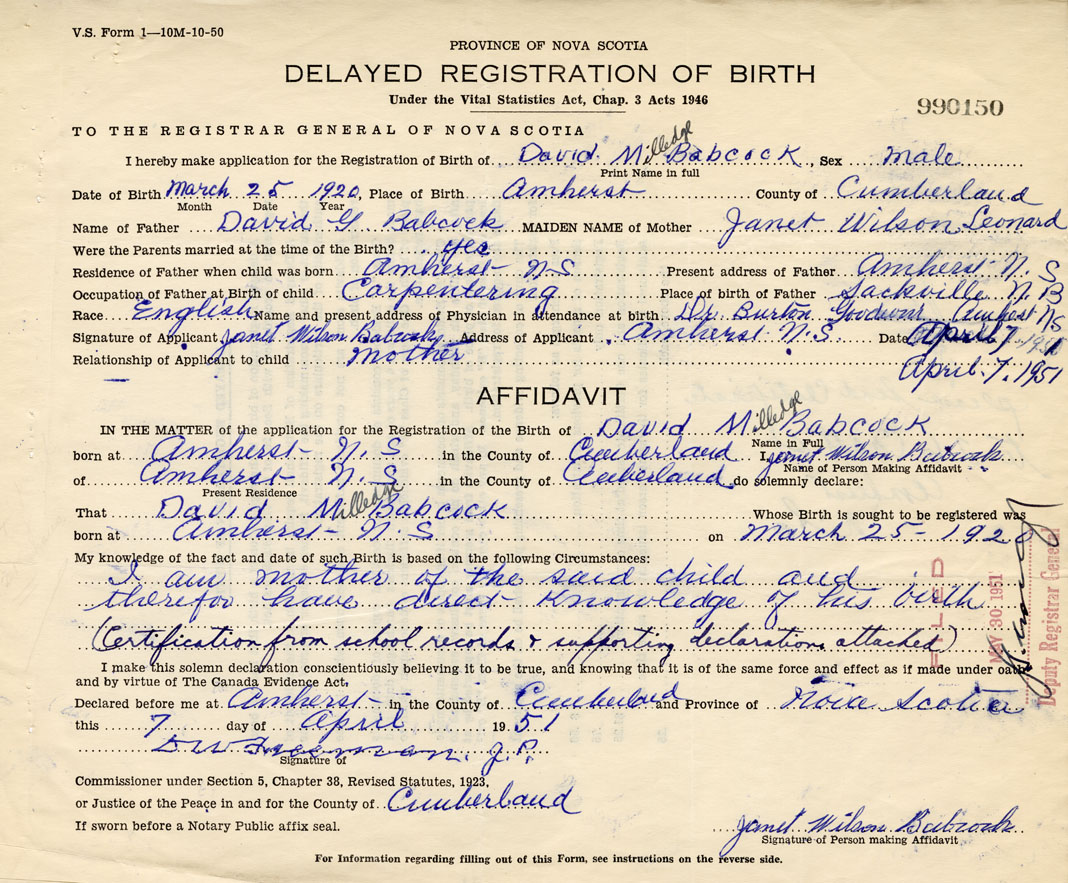 V.S. Form 1—10M-10-50
PROVINCE OF NOVA SCOTIA
DELAYED REGISTRATION OF BIRTH
Under the Vital Statistics Act, Chap. 3 Acts 1946
990150
TO THE REGISTRAR GENERAL OF NOVA SCOTIA
I hereby make application for the Registration of Birth of David Milledge Babcock, Sex male
Print Name in full
Date of Birth March 25 1920, Place of Birth Amherst County of Cumberland
Month Date Year
Name of Father David G Babcock MAIDEN NAME of Mother Janet Wilson Leonard
Were the Parents married at the time of the Birth? yes
Residence of Father when child was born Amherst N S Present address of Father Amherst N. S
Occupation of Father at Birth of child Carpentering Place of birth of Father Sackville N B
Race English Name and present address of Physician in attendance at birth Dr. Burton Goodwin Amherst NS
Signature of Applicant Janet Wilson Babcock Address of Applicant Amherst N.S Date April 7 1951
Relationship of Applicant to child mother April 7, 1951
AFFIDAVIT
IN THE MATTER of the application for the Registration of the Birth of David Milledge Babcock
Name in Full
born at Amherst N. S in the County of Cumberland I, Janet Wilson Babcock
Name of Person Making Affidavit
of Amherst N. S in the County of Cumberland do solemnly declare:
Present Residence
That David Milledge Babcock Whose Birth is sought to be registered was
born at Amherst N. S on March 25 - 1920
My knowledge of the fact and date of such Birth is based on the following Circumstances:
I am mother of the said child and
therefor have direct knowledge of his birth
(Certification from school records & supporting declarations attached)
I make this solemn declaration conscientiously believing it to be true, and knowing that it is of the same force and effect as if made under oath
and by virtue of The Canada Evidence Act,
Declared before me at Amherst in the County of Cumberland and Province of Nova Scotia
this 7 day of April 1951
D W Freeman. J.P.
Signature of
Commissioner under Section 5, Chapter 38, Revised Statutes, 1923,
or Justice of the Peace in and for the County of Cumberland
If sworn before a Notary Public affix seal.
Janet Wilson Babcock
Signature of Person making Affidavit
For Information regarding filling out of this Form, see instructions on the reverse side.
FILED
MAY 30 1951
Deputy Registrar General